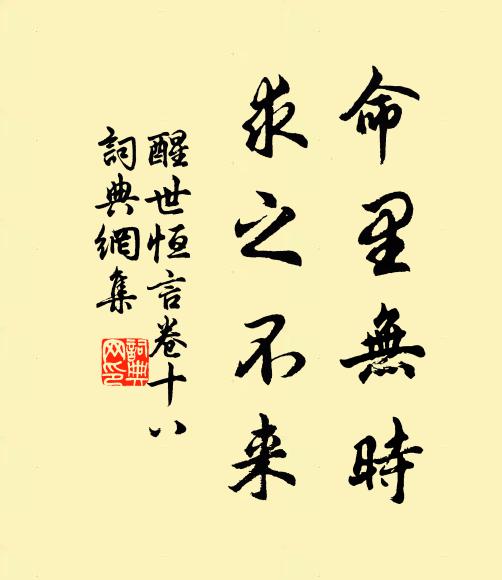 命里無時
求之不来
醒世恆言卷十八
詞典網集
詞典
网印